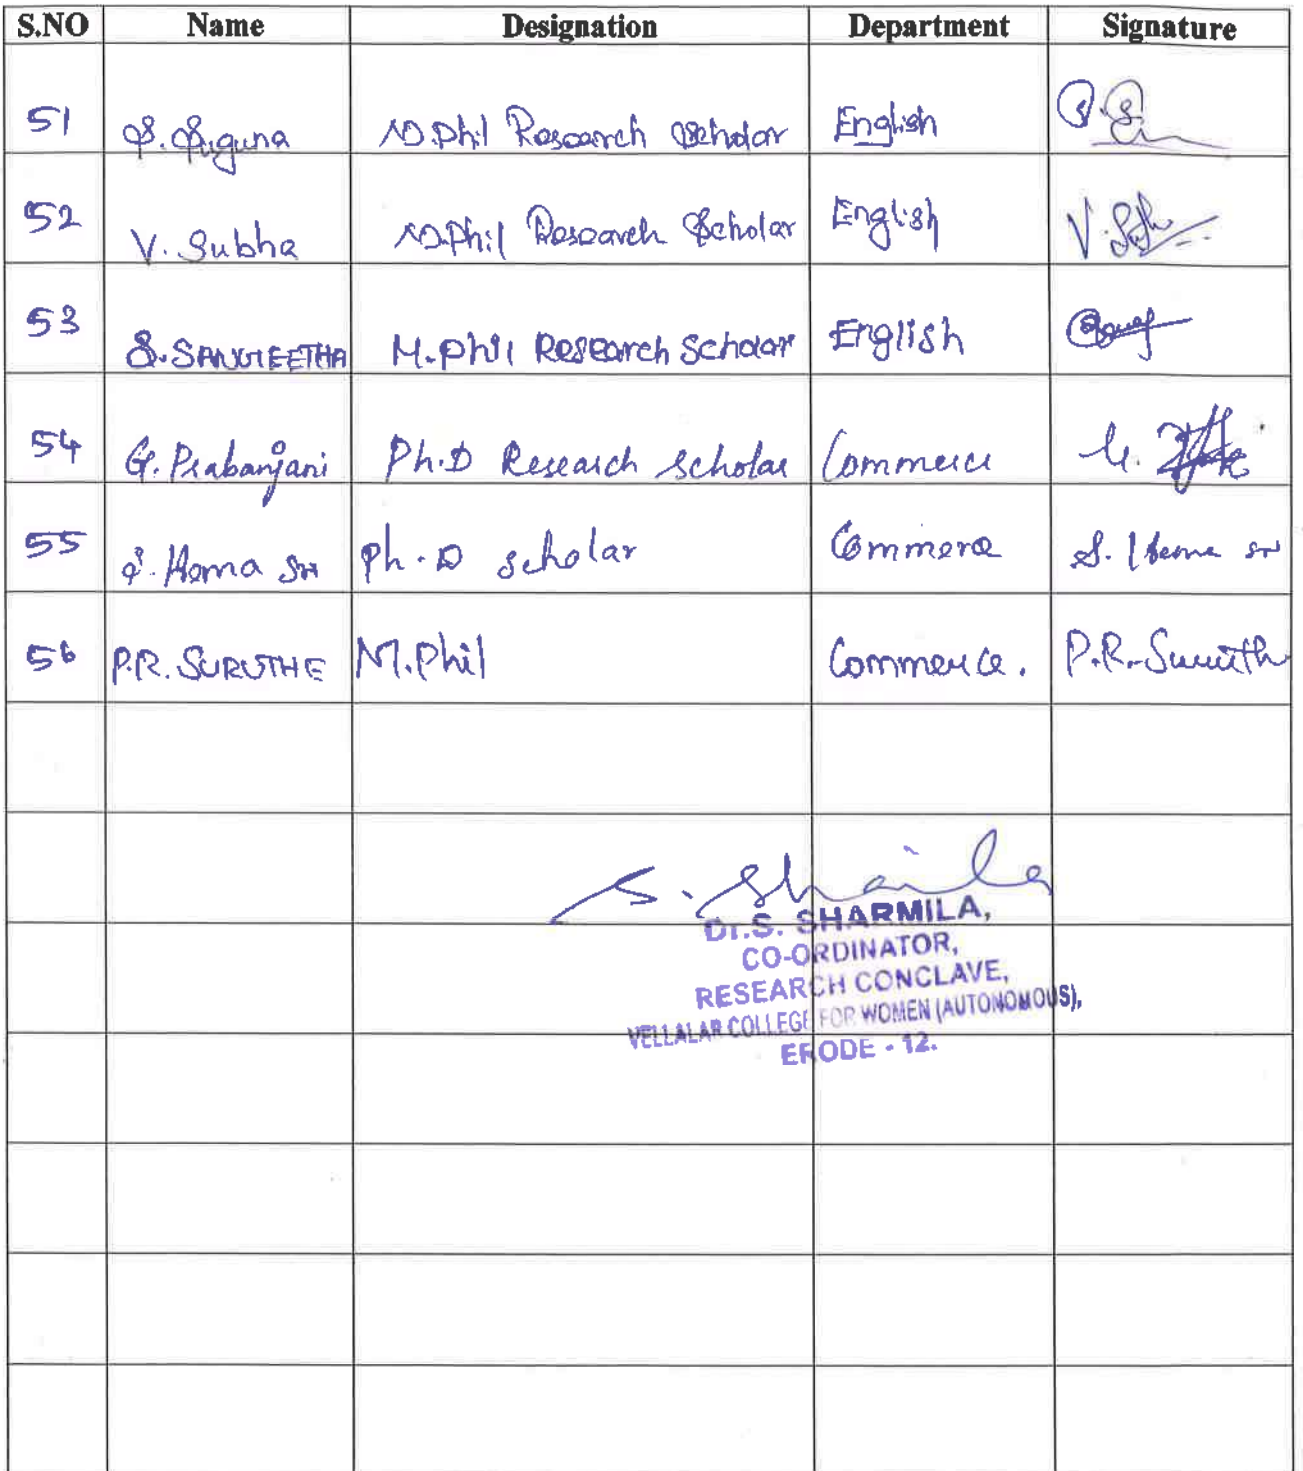 S.NO Name Designation Department Signature
51 S. Suguna M.Phil Research Scholar English
52 V. Subha M.Phil Research Scholar English V.
53 S. SANGEETHA M.Phil Research Schoar English
54 G. Prabanjani Ph.D Research Scholar Commerce G.
55 S. Hema Sri Ph.D Scholar Commerce S. Hema Sri
56 P.R. SURUTHE M.Phil Commerce. P.R. Suruth
Dr.S. SHARMILA,
CO-ORDINATOR,
RESEARCH CONCLAVE,
VELLALAR COLLEGE FOR WOMEN (AUTONOMOUS),
ERODE - 12.